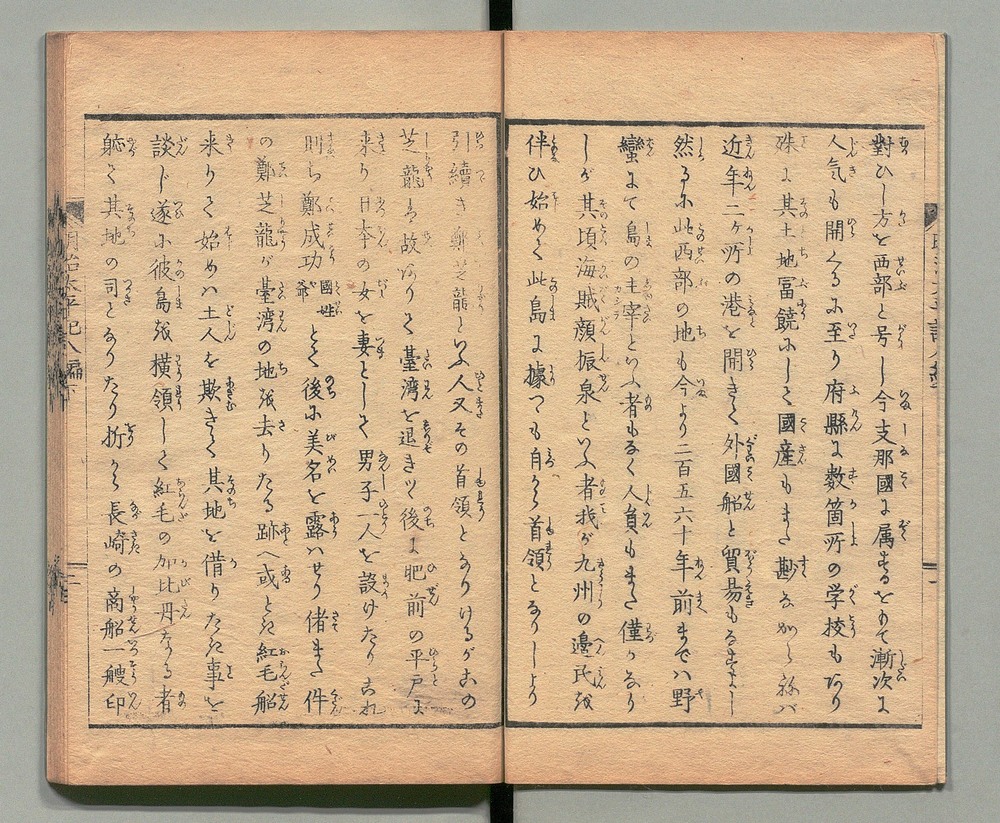 對ひし方を西部と号し今支那國に属するをもて漸次に
人気も開くるに至り府縣に数箇所の学校もあり
殊に其土地冨饒にして國産もまた尠なからねバ
近年二ヶ所の港を開きて外國船と貿易もるすよし
然るに此西部の地も今より二百五六十年前までハ野
蠻にて島の主宰といふ者もなく人員もまた僅かなり
しが其頃海賊顔振泉といふ者我が九州の邉民を
伴ひ始めて此島に據つも自から首領となりしより
引續き鄭芝龍といふ人又その首領となりけるがこの
芝龍ハ故ありて臺湾を退きツヽ後に肥前の平戸に
来り日本の女を妻として男子一人を設けたりこれ
則ち鄭成功國姓爺とて後に美名を露ハせり偖また件
の鄭芝龍が臺湾の地を去りたる跡へ或とき紅毛船
来りて始めハ土人を欺きて其地を借りたき事を
談じ遂に彼島を横領して紅毛の加比丹なる者
躰て其地の司となりたり折から長崎の商船一艘印
明治太平記八編下